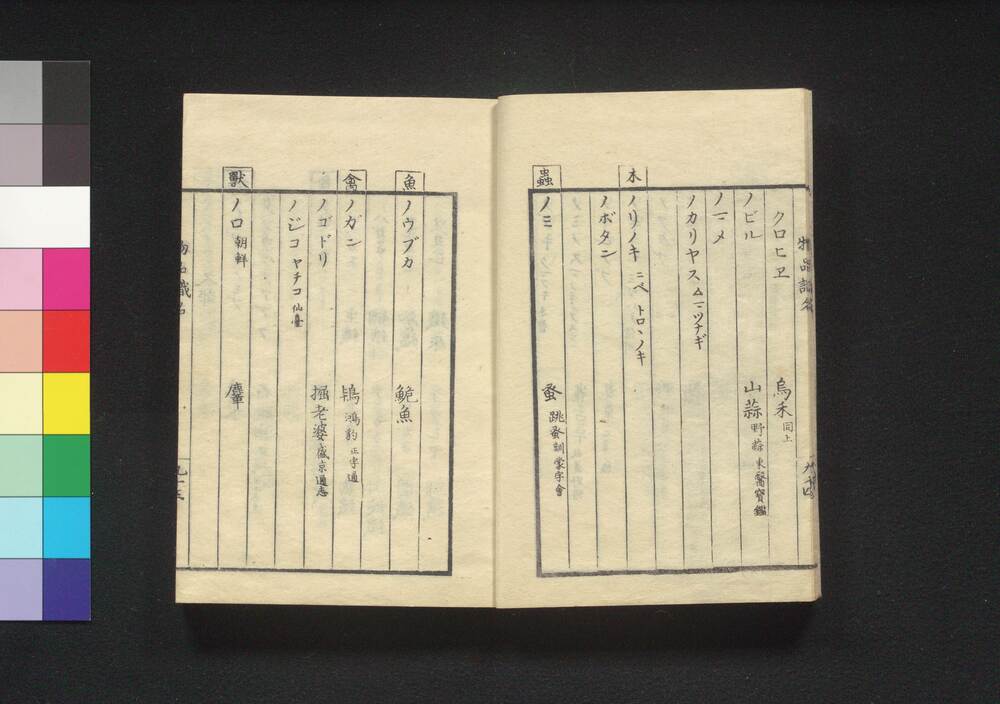 クロヒヱ 烏禾 同上
ノビル 山蒜 野蒜 東醫寶鑑
ノマメ
ノカリヤス △マツナギ
木
ノリノキ ニベ トロヽノキ
ノボタン
蟲
ノミ 蚤 跳蚤 訓蒙字會
魚
ノウブカ 鮠魚
禽
ノガン 鴇 鴻豹 正字通
ノゴドリ 掘老婆 盛京通志
ノジコ ヤチコ 仙臺
獸
ノロ 朝鮮 麞